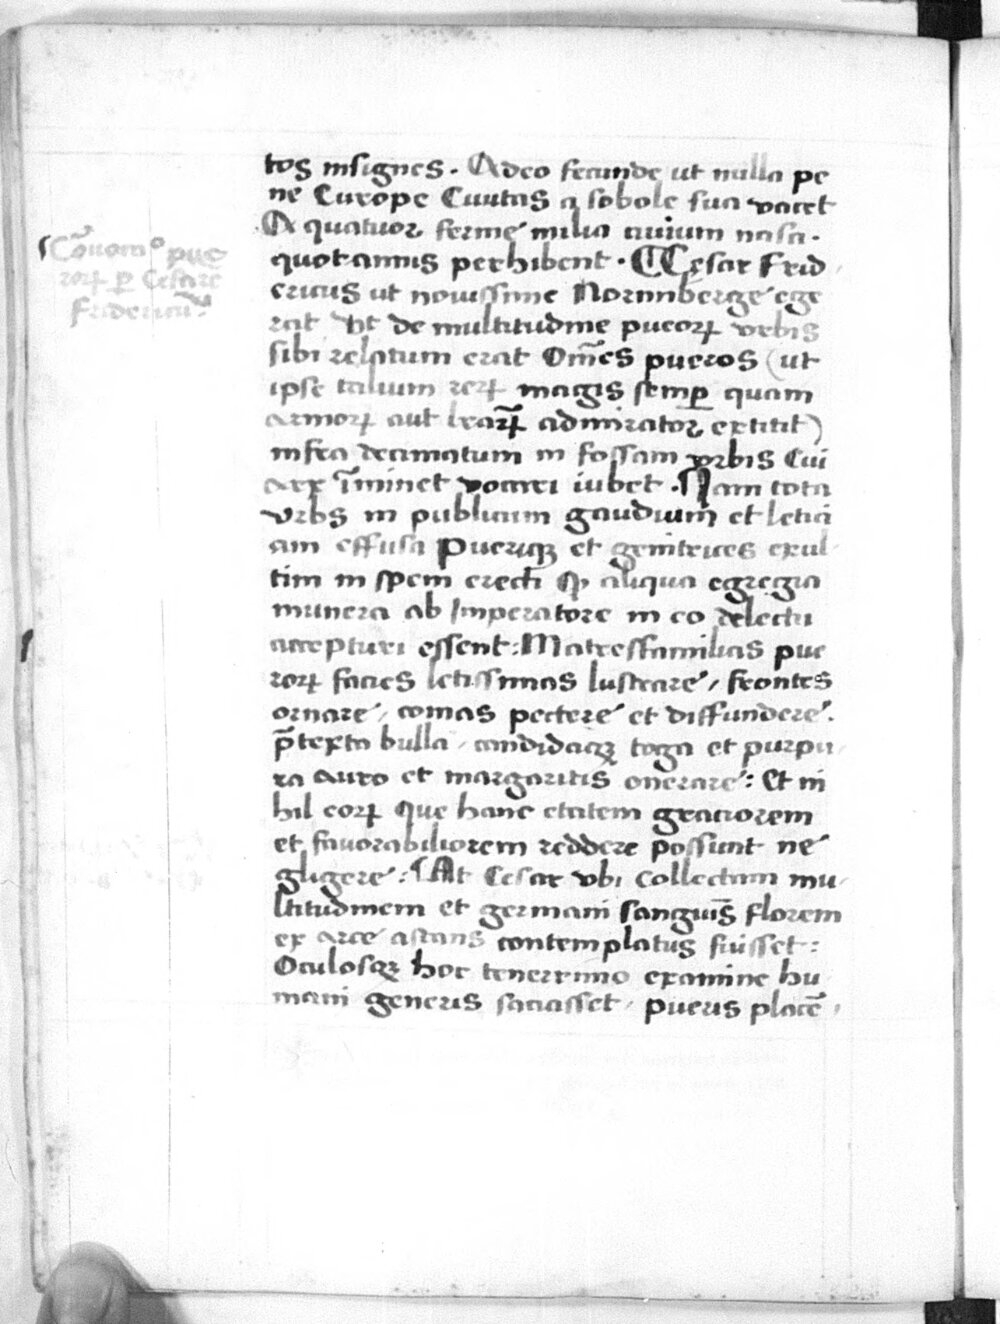 tos insignes. Adeo fecunde ut nulla pe
ne Europe Ciuitas a sobole sua vacet
A quatuor ferme milia ciuium nasci.
quotannis perhibent. Cesar Frid
ericus ut nouissime Norimberge ege
rat Vt de multitudine pueoꝝ vrbis
sibi relatum erat Om̄es pueros (ut
ipse talium reꝝ magis semꝑ quam
armoꝝ aut l̄raꝝ admirator extitit)
infra decimatum in fossam vrbis Cui
arx īminet vocari iubet. Nam tota
vrbs in publicum gaudium et letici
am effusa Pueriqꝫ et genitrices exul
tim in spem erecti ꝙ aliqua egregia
munera ab Imperatore in eo delectu
accepturi essent: Matresfamilias pue
roꝝ facies letissimas lustrare, frontes
ornare, comas pectere et diffundere.
p̄texta bulla, candidaqꝫ toga et purpu
ra auro et margaritis onerare: Et ni
hil eoꝝ que hanc etatem graciorem
et fauorabiliorem reddere possunt ne
gligere: At Cesar vbi collectam mu
ltitudinem et germani sanguīs florem
ex arce astans contemplatus fuisset:
Oculosqꝫ hoc tenerrimo examine hu
mani generis saciasset, pueris placē
Cōuocatᵒ pue
roꝝ ꝑ Cesarē
Fridericū.